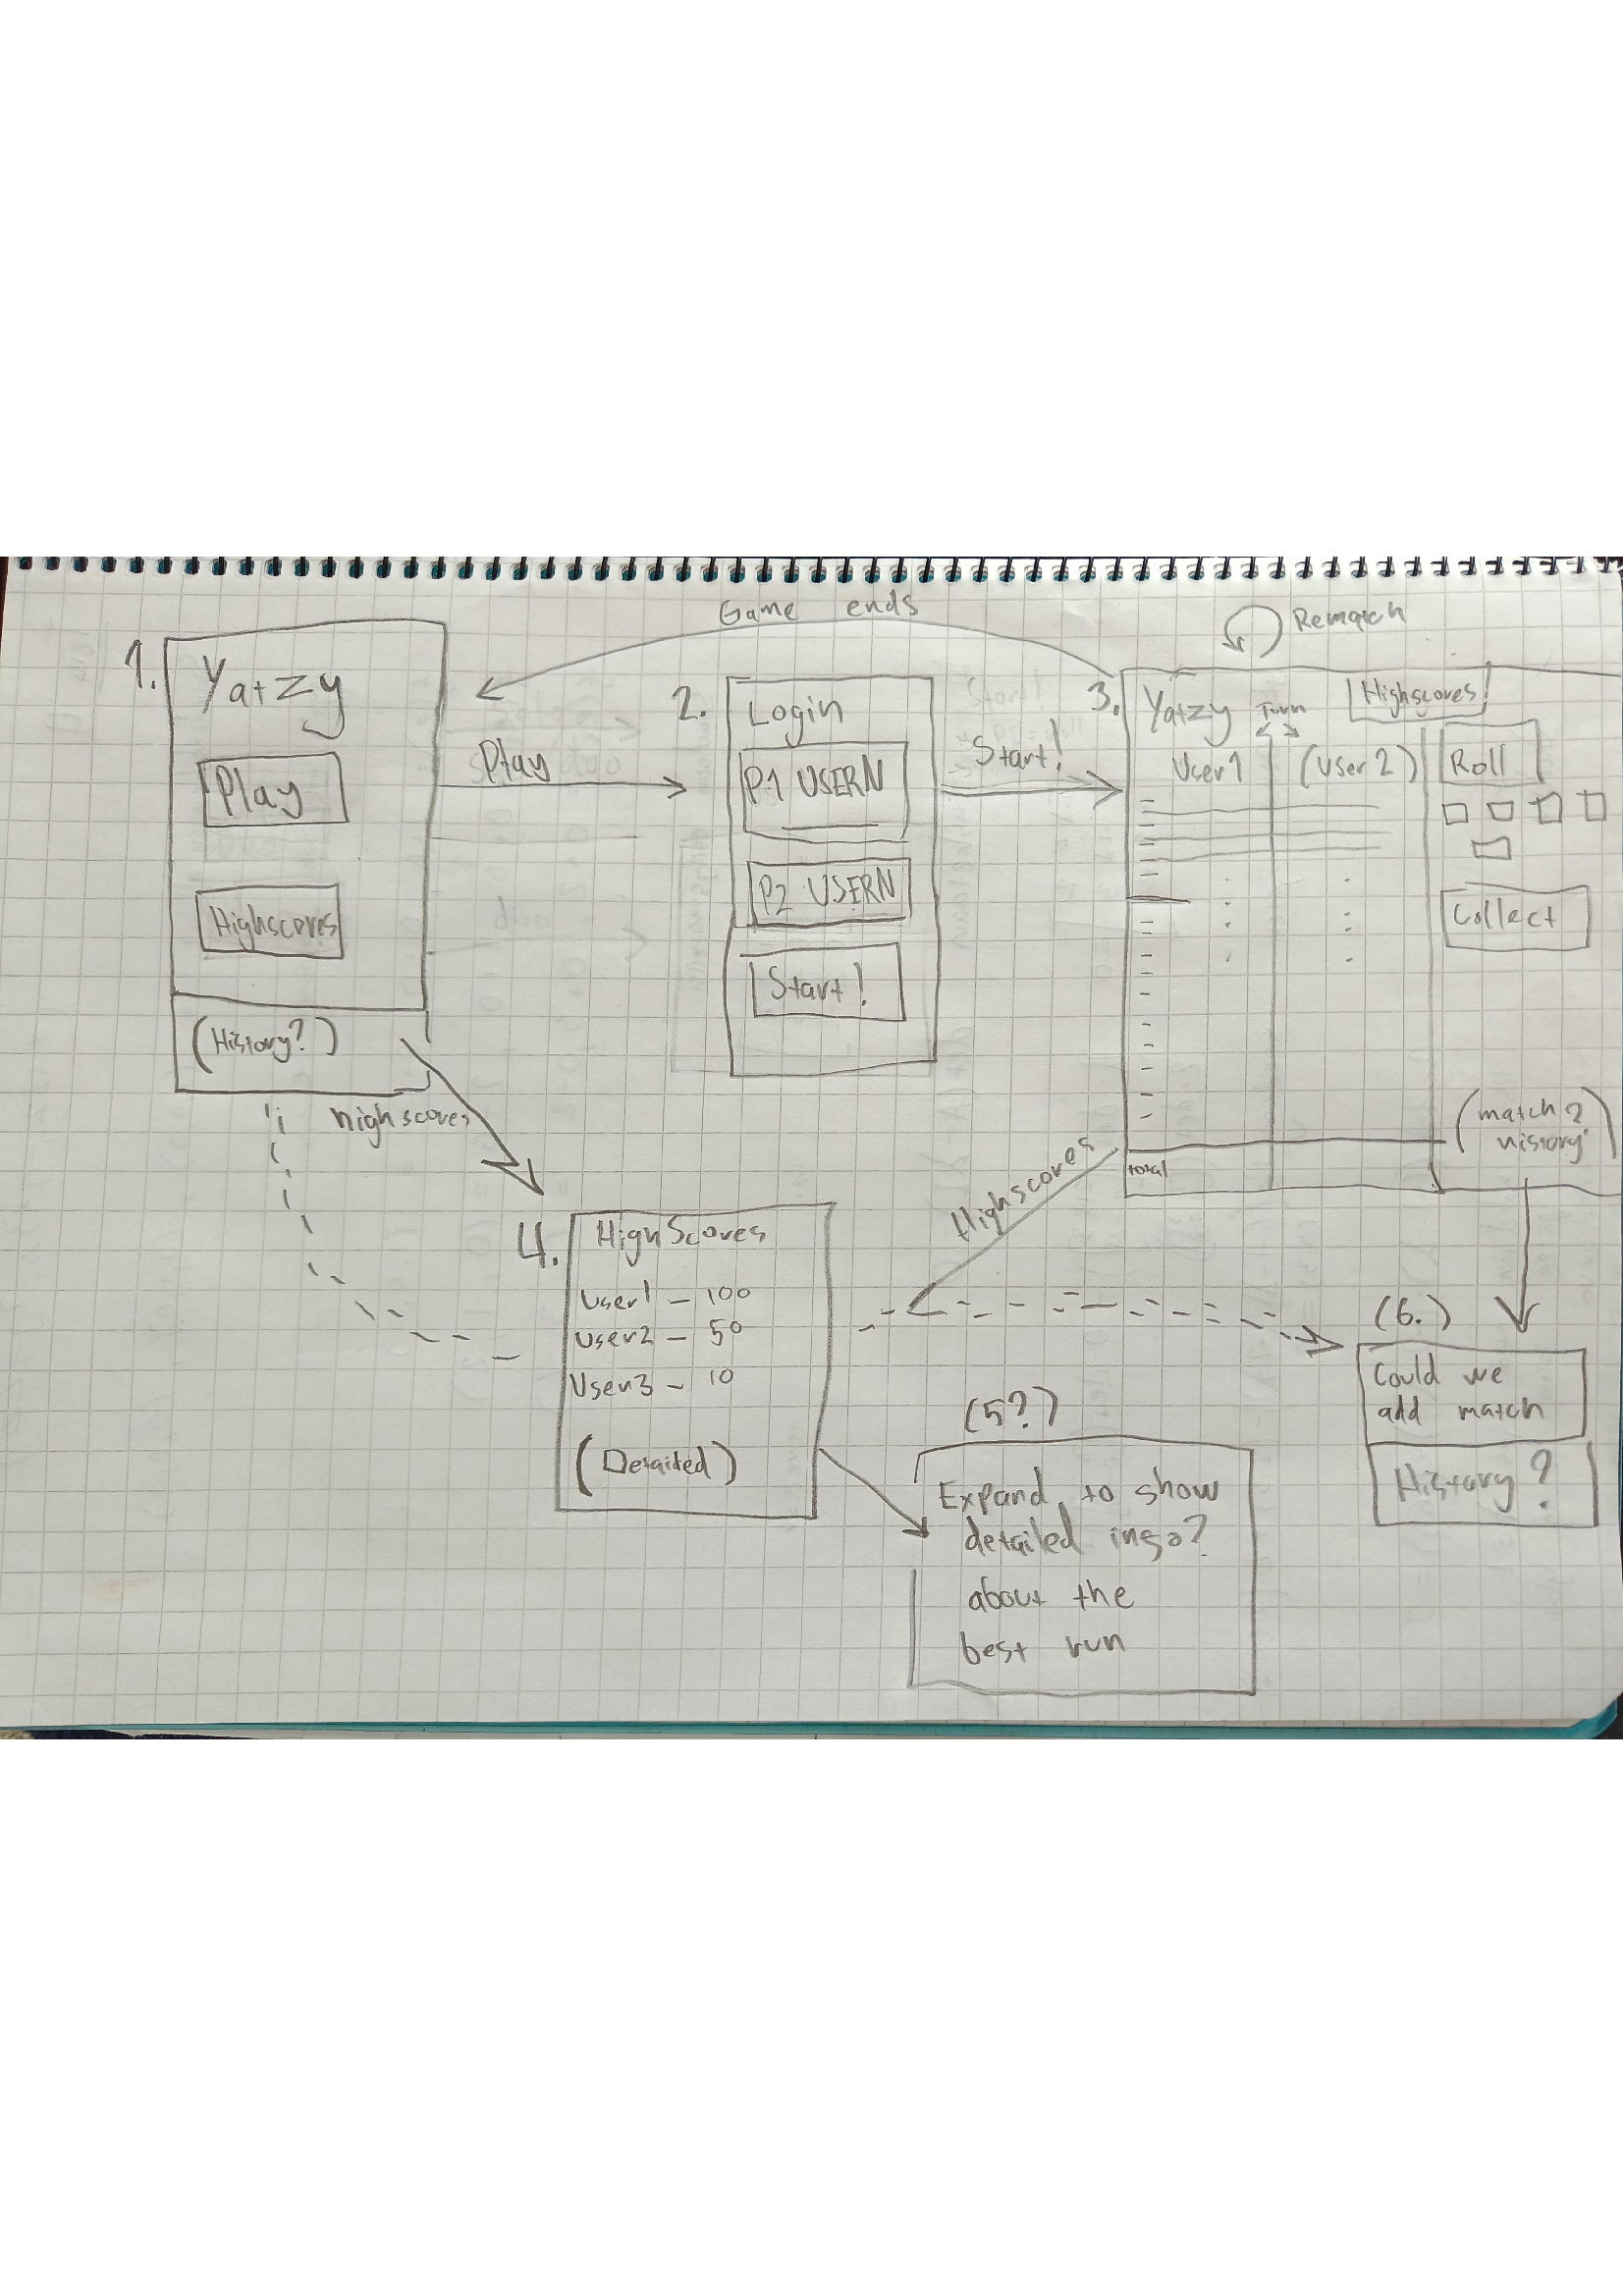 Game ends
Rematch
1.
Yatzy
Play
Highscores
(History?)
Play
2.
Login
P1 USERN
P2 USERN
Start!
Start!
3.
Yatzy
Turn
Highscores
User1
(User2)
Roll
Collect
total
(match history?)
highscores
Highscores
4.
HighScores
User1 - 100
User2 - 50
User3 - 10
(Detailed)
(5?)
Expand to show
detailed info?
about the
best run
(6.)
Could we
add match
History?